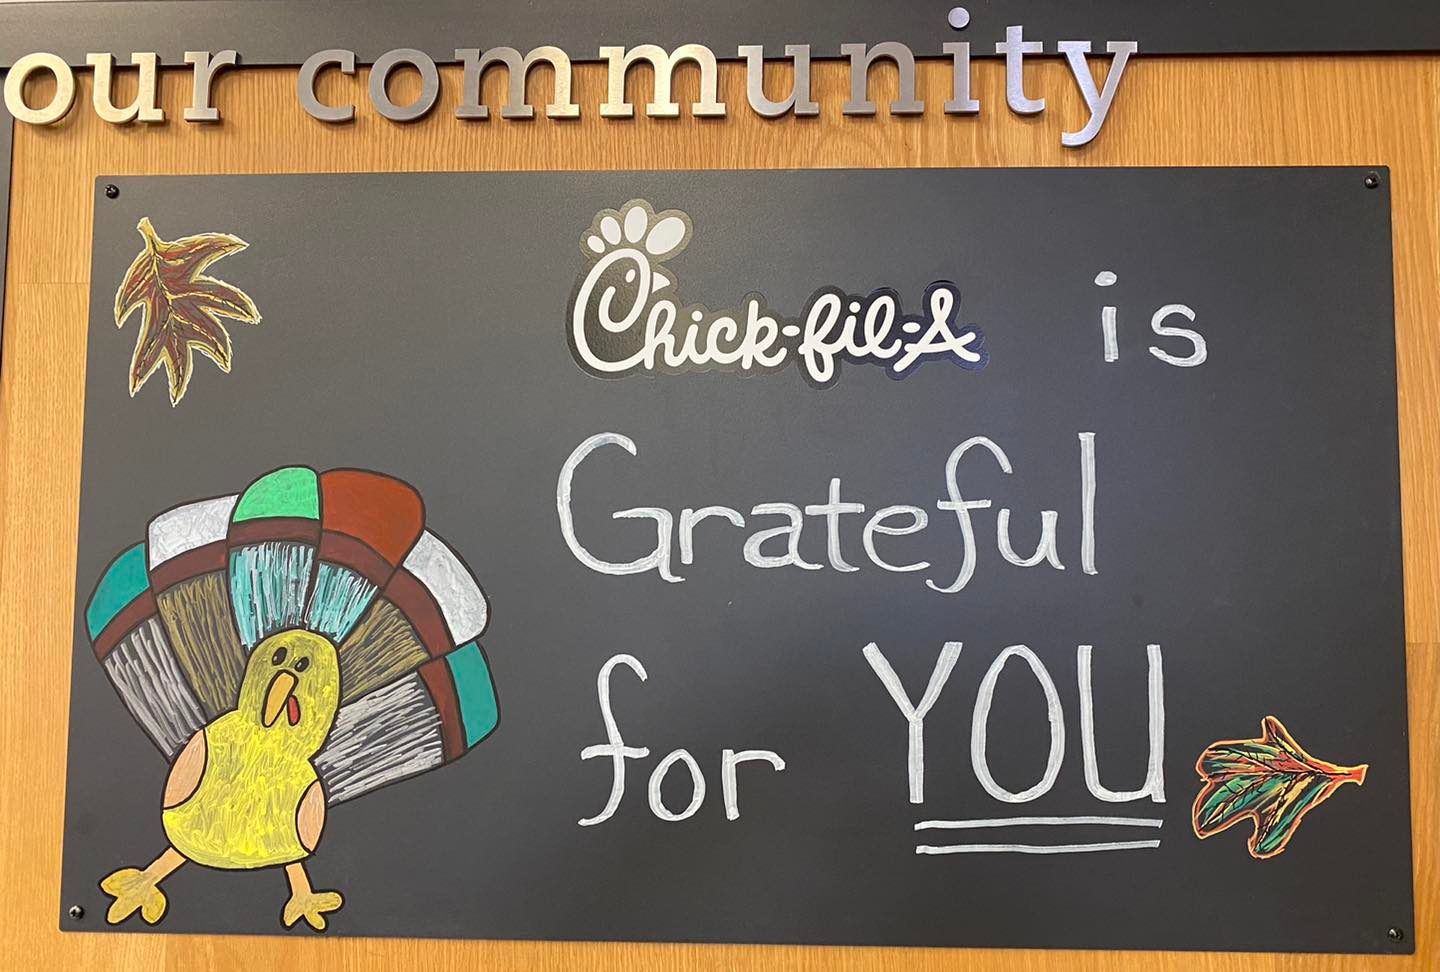 our community
Chick-fil-A is
Grateful
for YOU